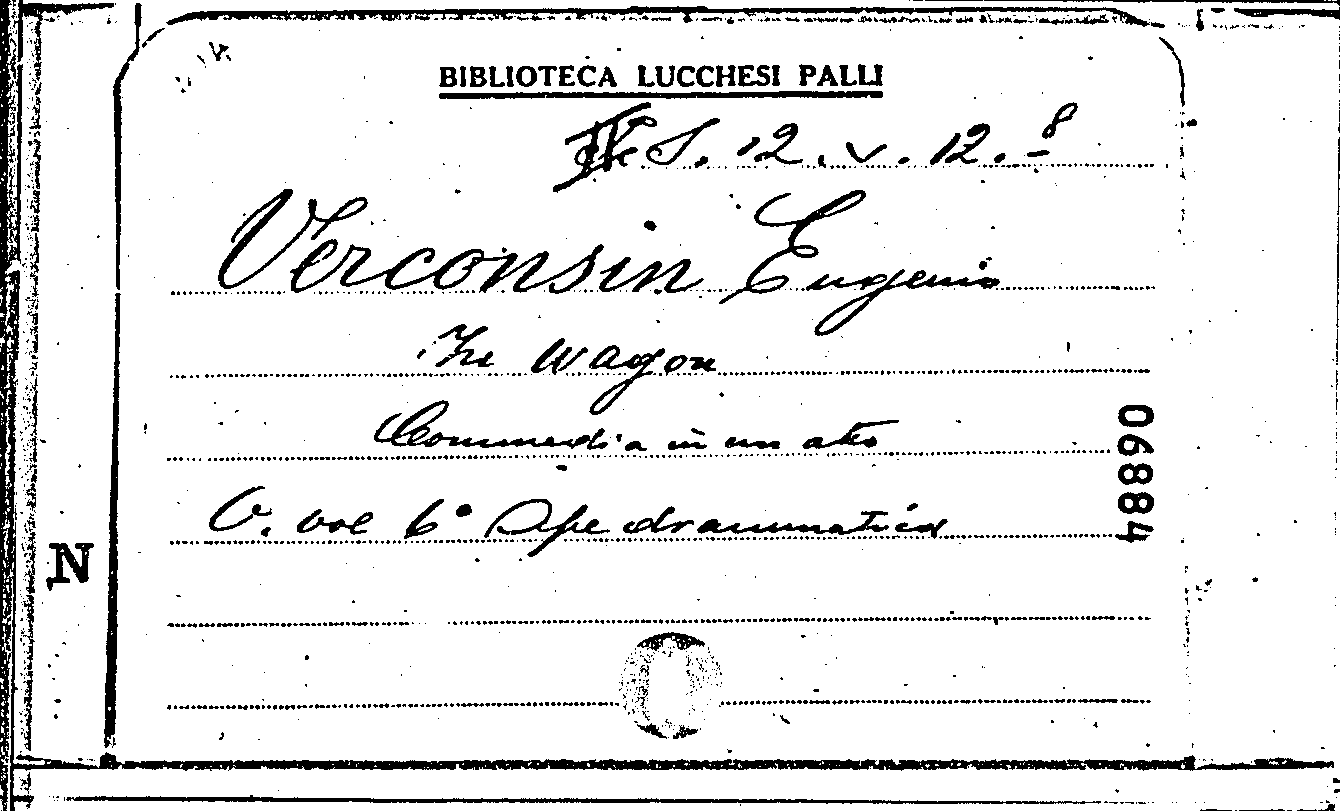 BIBLIOTECA LUCCHESI PALLI
S. 12. v. 12. 8
Verconsin Eugenio
In Wagon
Commedia in un atto
V. vol 6° Ope drammatica
06884
N